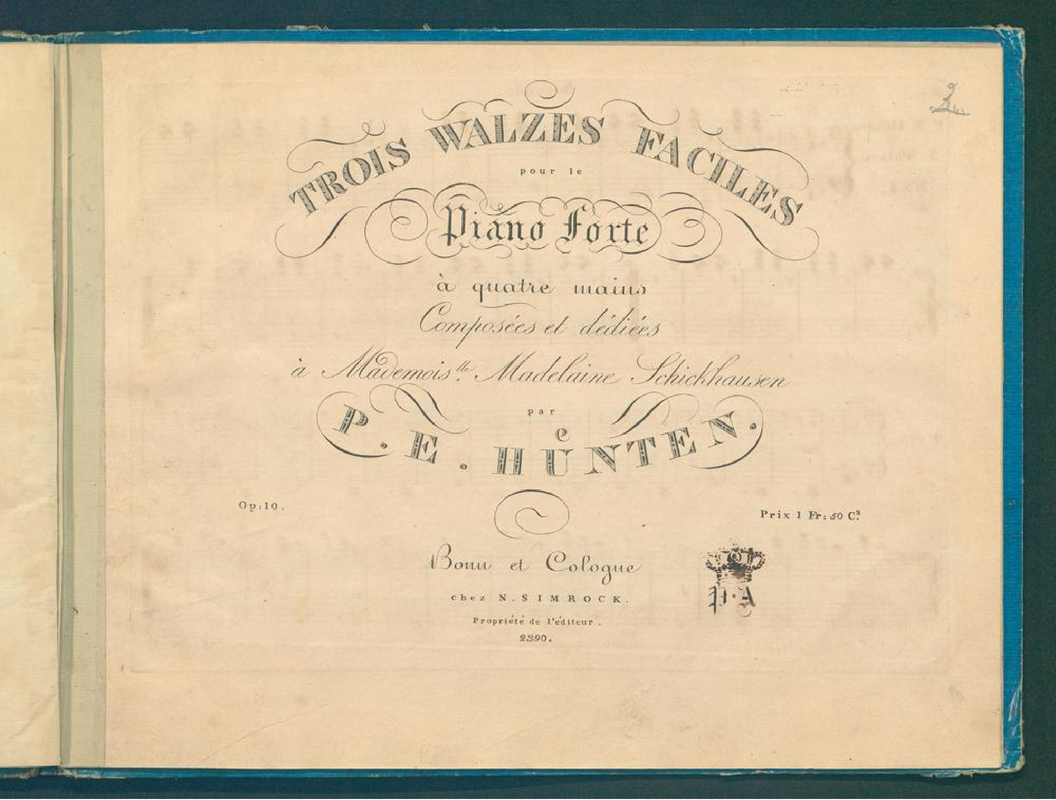 TROIS WALZES FACILES
pour le
Piano Forte
à quatre mains
Composées et dédiées
à Mademois.lle Madelaine Schickhausen
par
P. E. HÜNTEN.
Op: 10.
Prix 1 Fr: 50 Cs.
Bonn et Cologne
chez N. SIMROCK.
Propriété de l'editeur.
2390.
P·A